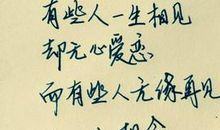 有些人一生相见
却无心爱恋
而有些人无缘再见